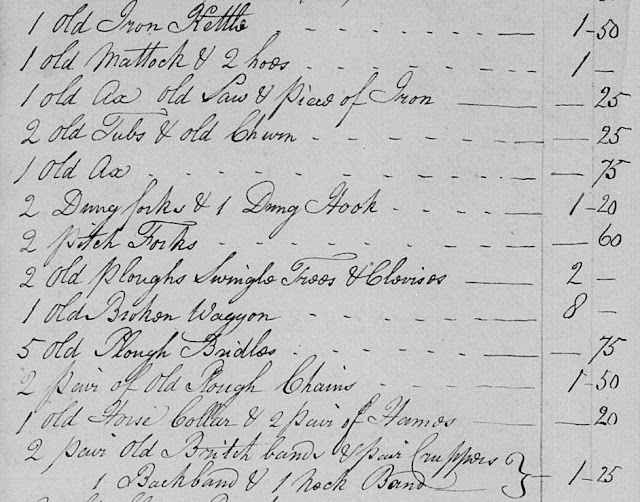 1 old Iron Kettle - - - - - - - - 1-50
1 old Mattock & 2 hoes - - - - - - - 1 -
1 old Ax old Saw & piece of Iron — — 25
2 old Tubs & old Churn - - - - - - — 25
1 old Ax - - - - - - - - - — 75
2 Dung forks & 1 Dung Hook - - - - — 1-20
2 pitch Forks - - - - - - - - - — 60
2 old ploughs Swingle Trees & Clevises — 2 -
1 old Broken Waggon - - - - - - — 8 -
5 old Plough Bridles - - - - - - — 75
2 pair of old Plough Chains - - - - - 1-50
1 old Horse Collar & 2 pair of Hames — — 20
2 pair old Britch bands & pair Cruppers }
1 Backband & 1 neck Band } 1-25